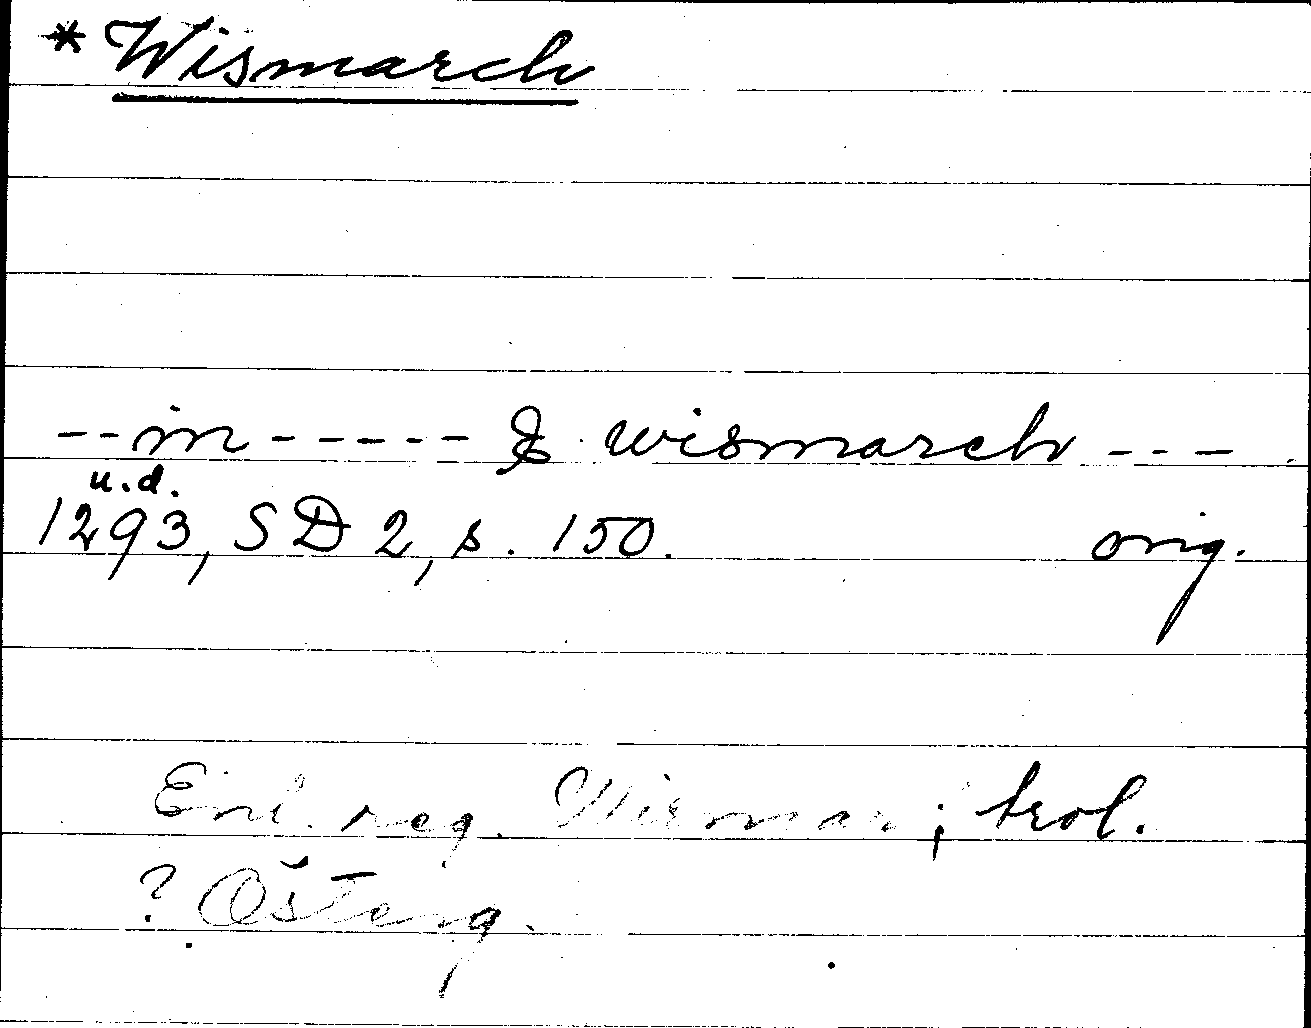 * Wismarch
-- in ----- & wismarch --- .
u.d.
1293, SD 2, s. 150. orig.
Enl. reg. Wismar; trol.
? Österg.